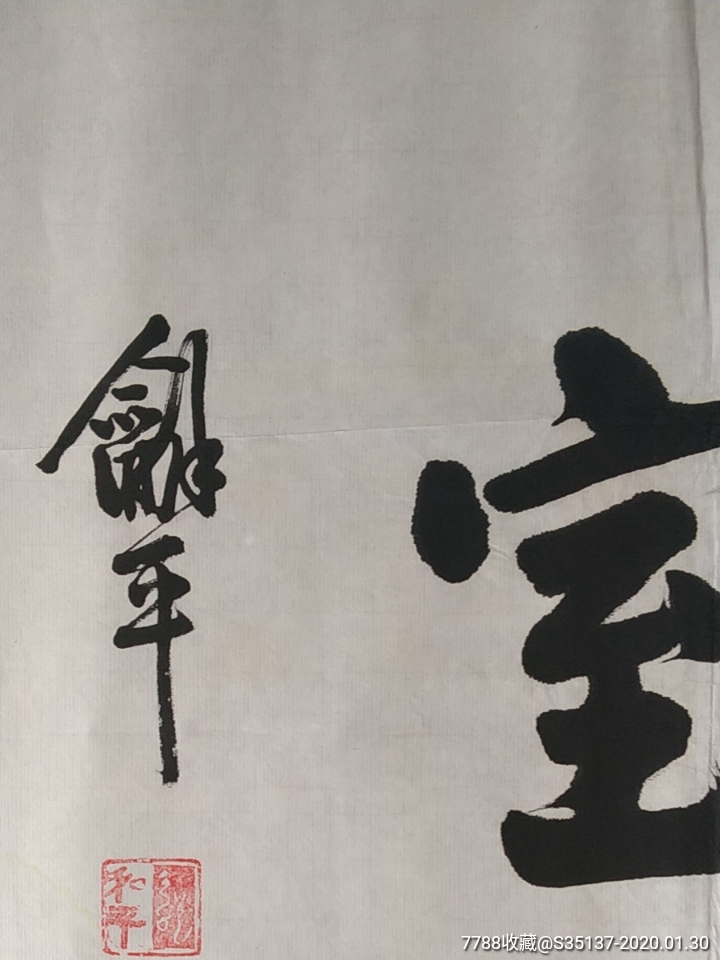 室
龢平
和平
7788收藏@S35137-2020.01.30